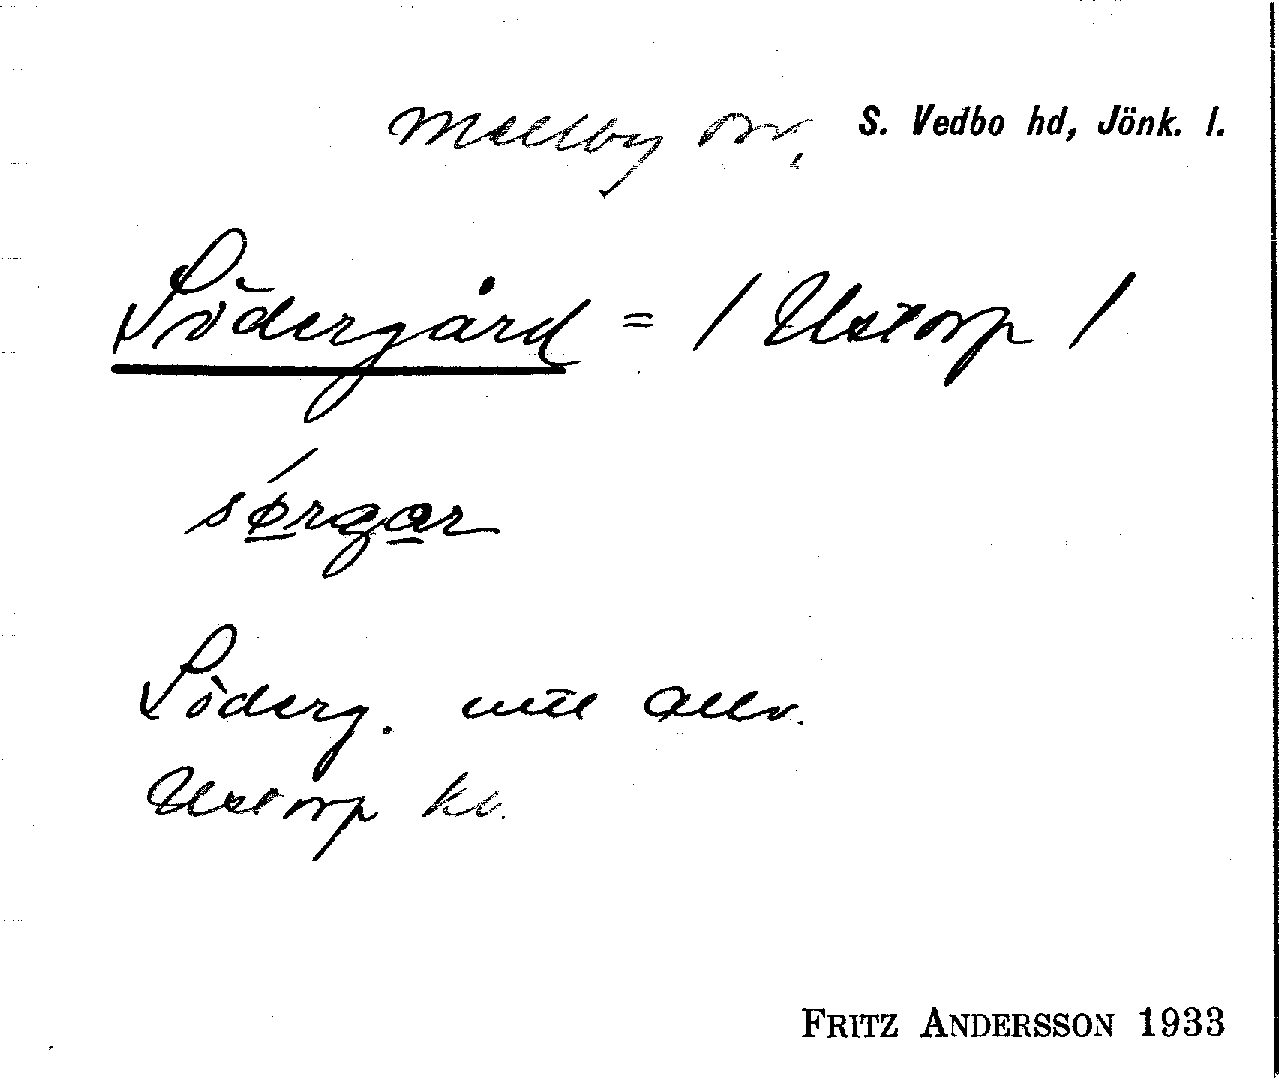 Mellby sn, S. Vedbo hd, Jönk. l.
Södergård = / Ustorp /
sørgar
Söderg. intill
Ustorp
FRITZ ANDERSSON 1933